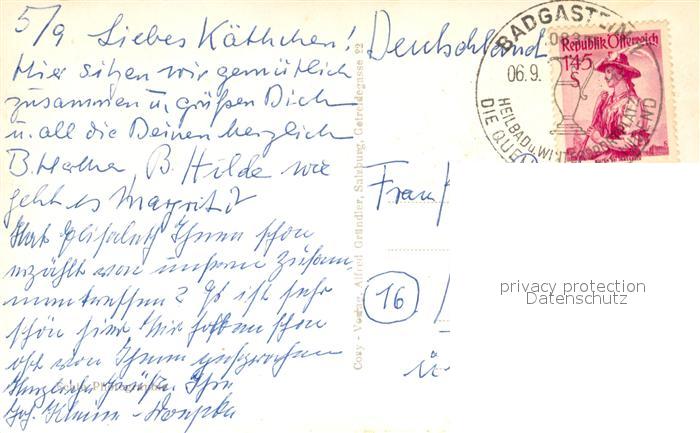 5/9 Liebes Käthchen!
Hier sitzen wir gemütlich
zusammen u. grüßen Dich
u. all die Deinen herzlich
B. Hertha, B. Hilde wie
geht es Margrit?
Hat Elisabeth Ihnen schon
erzählt von unserem Zusam-
mentreffen? Es ist sehr
schön hier. Wir haben schon
oft von Ihnen gesprochen
Herzliche Grüße Ihre
Joh. Kleine-
Copy - Verlag, Alfred Gründler, Salzburg, Getreidegasse 22
Deutschland
BADGASTEIN
06.9.
HEILBAD u. WINTERSPORTPLATZ
DIE QUE
Republik Österreich
1'45
S
Fran
16
privacy protection
Datenschutz